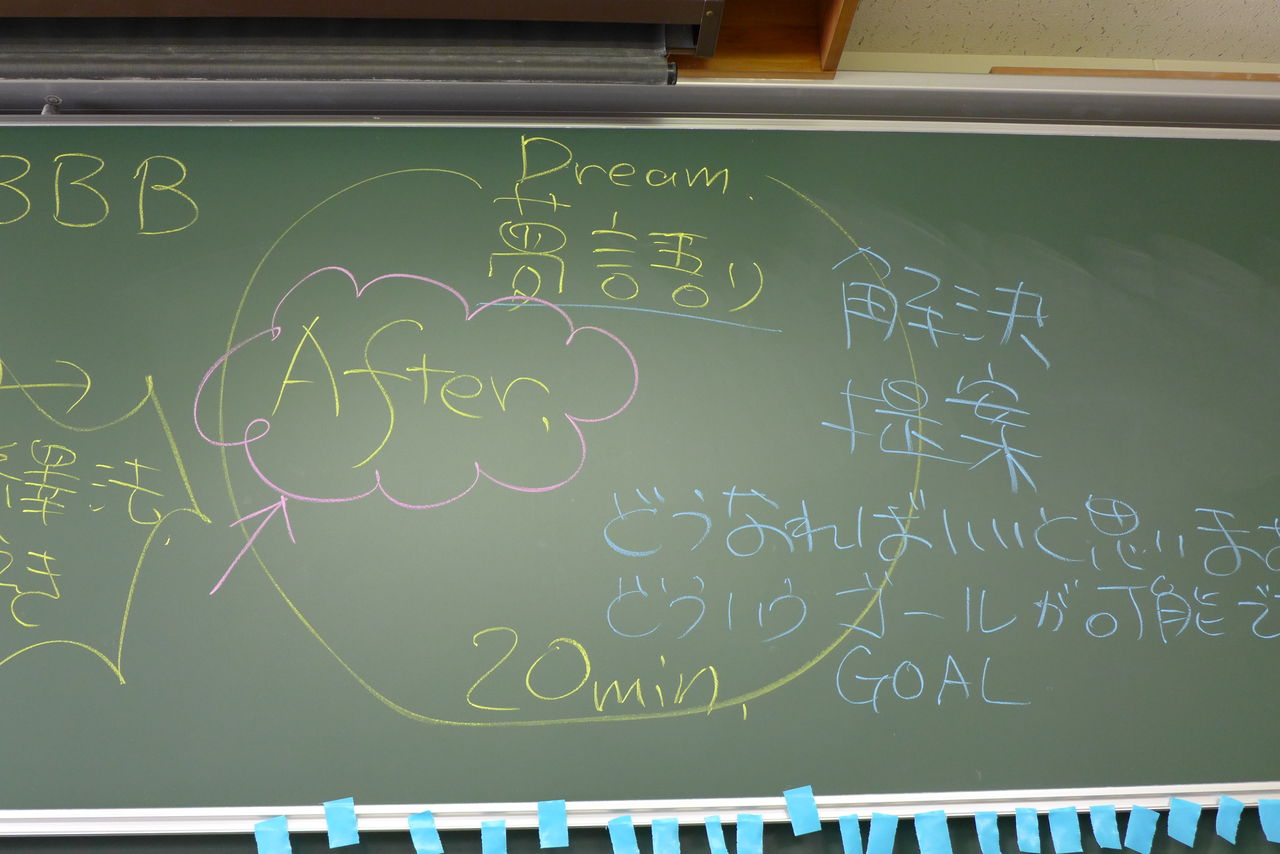 BBB
Dream.
夢語り
After,
20min,
解決
提案
どうなればいいと思いま
どういうゴールが可能で
GOAL